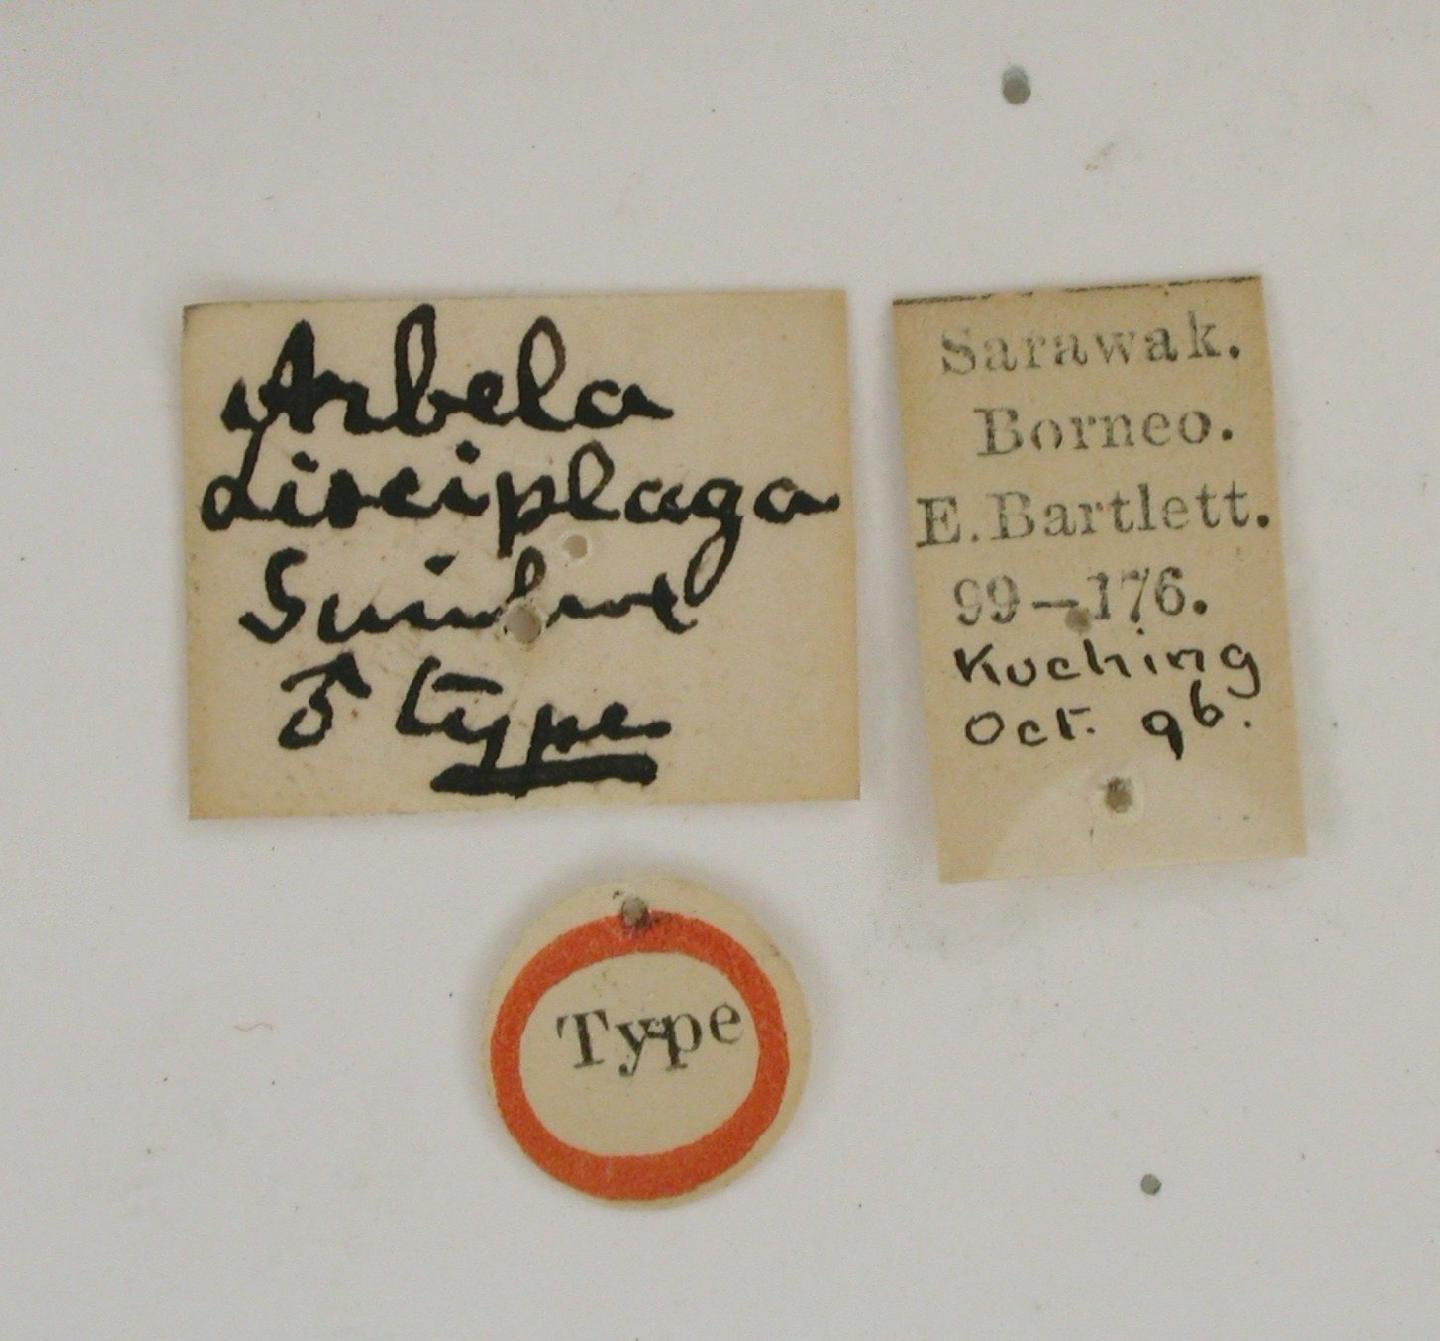 Arbela
disciplaga
Swinhoe
♂ type
Sarawak.
Borneo.
E. Bartlett.
99—176.
Kuching
Oct. 96.
Type